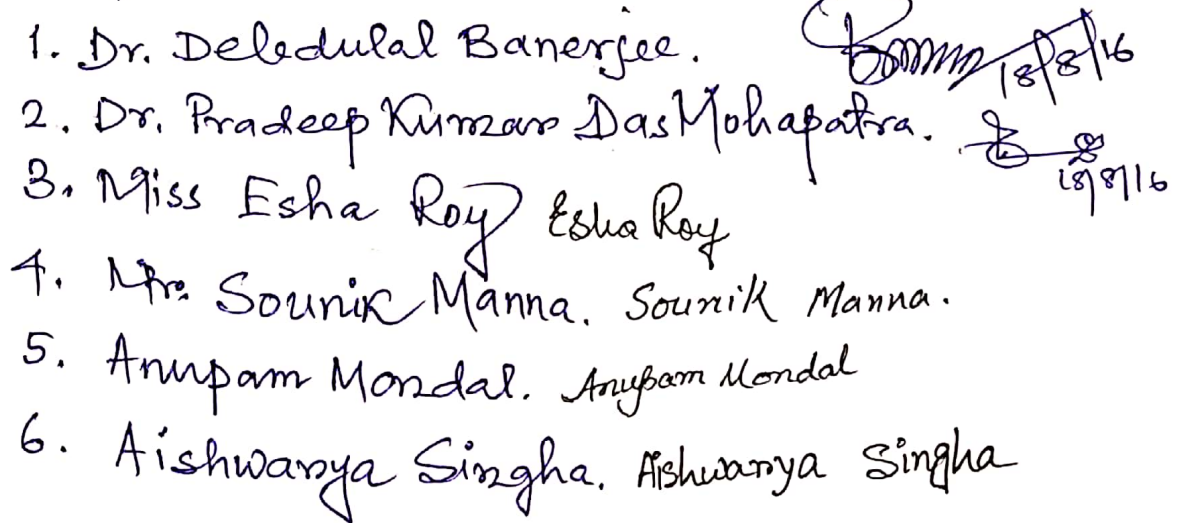 1. Dr. Debdulal Banerjee. 18/8/16
2. Dr. Pradeep Kumar Das Mohapatra. 18/8/16
3. Miss Esha Roy Esha Roy
4. Mr. Sounik Manna. Sounik Manna.
5. Anupam Mondal. Anupam Mondal
6. Aishwarya Singha. Aishwarya Singha